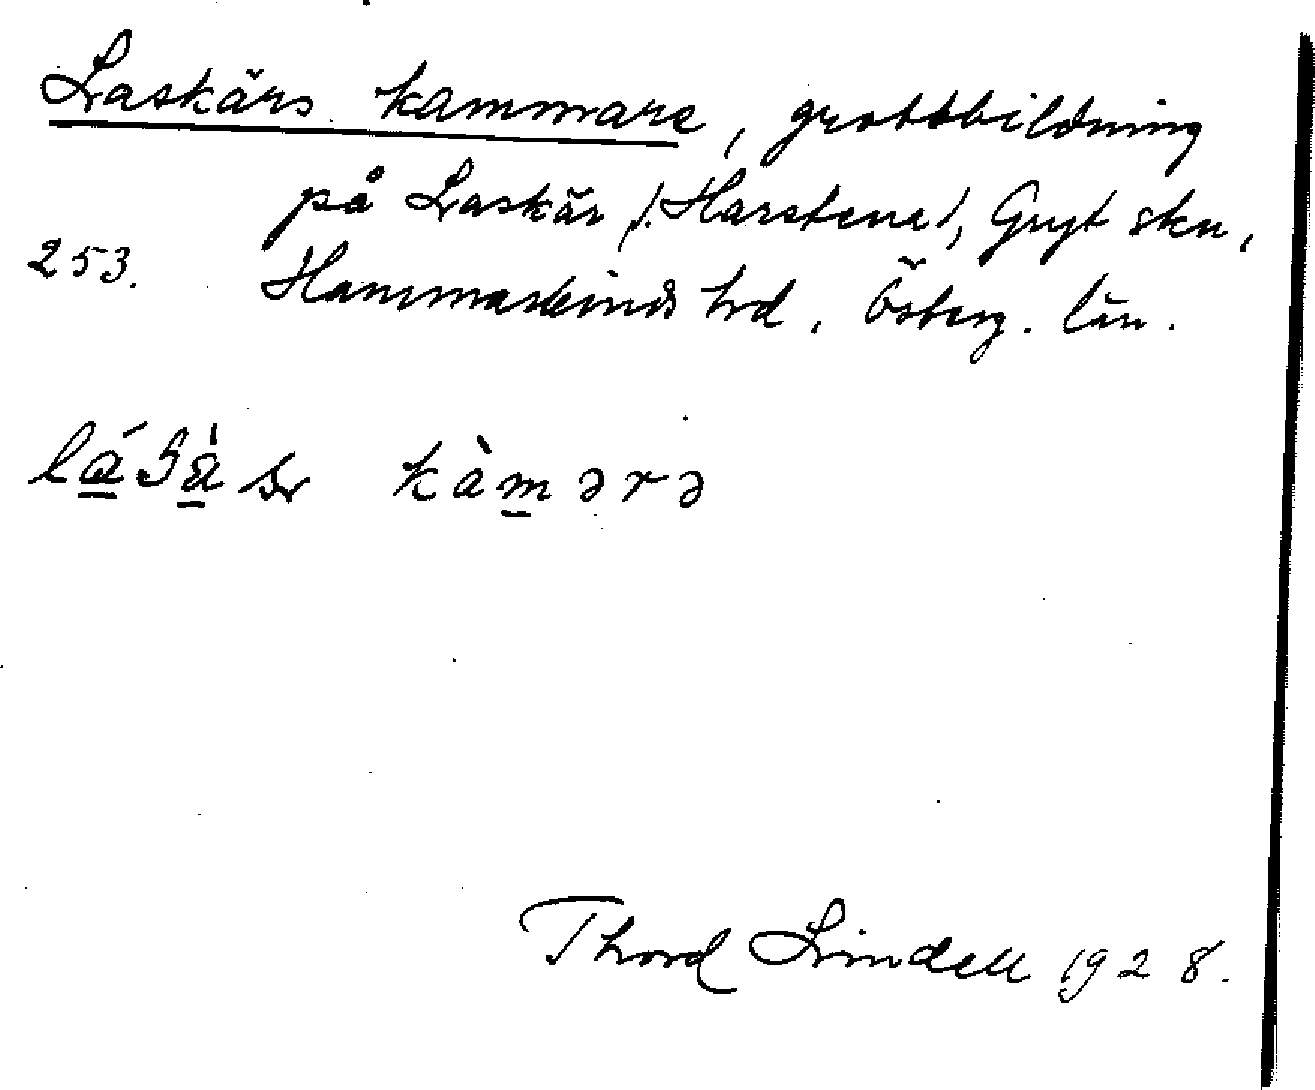 Laskärs kammare, grottbildning
på Laskär /: Harstena/, Gryt skn,
253. Hammarkinds hd. Österg. län.
kàmərə
Thord Lindell 1928.